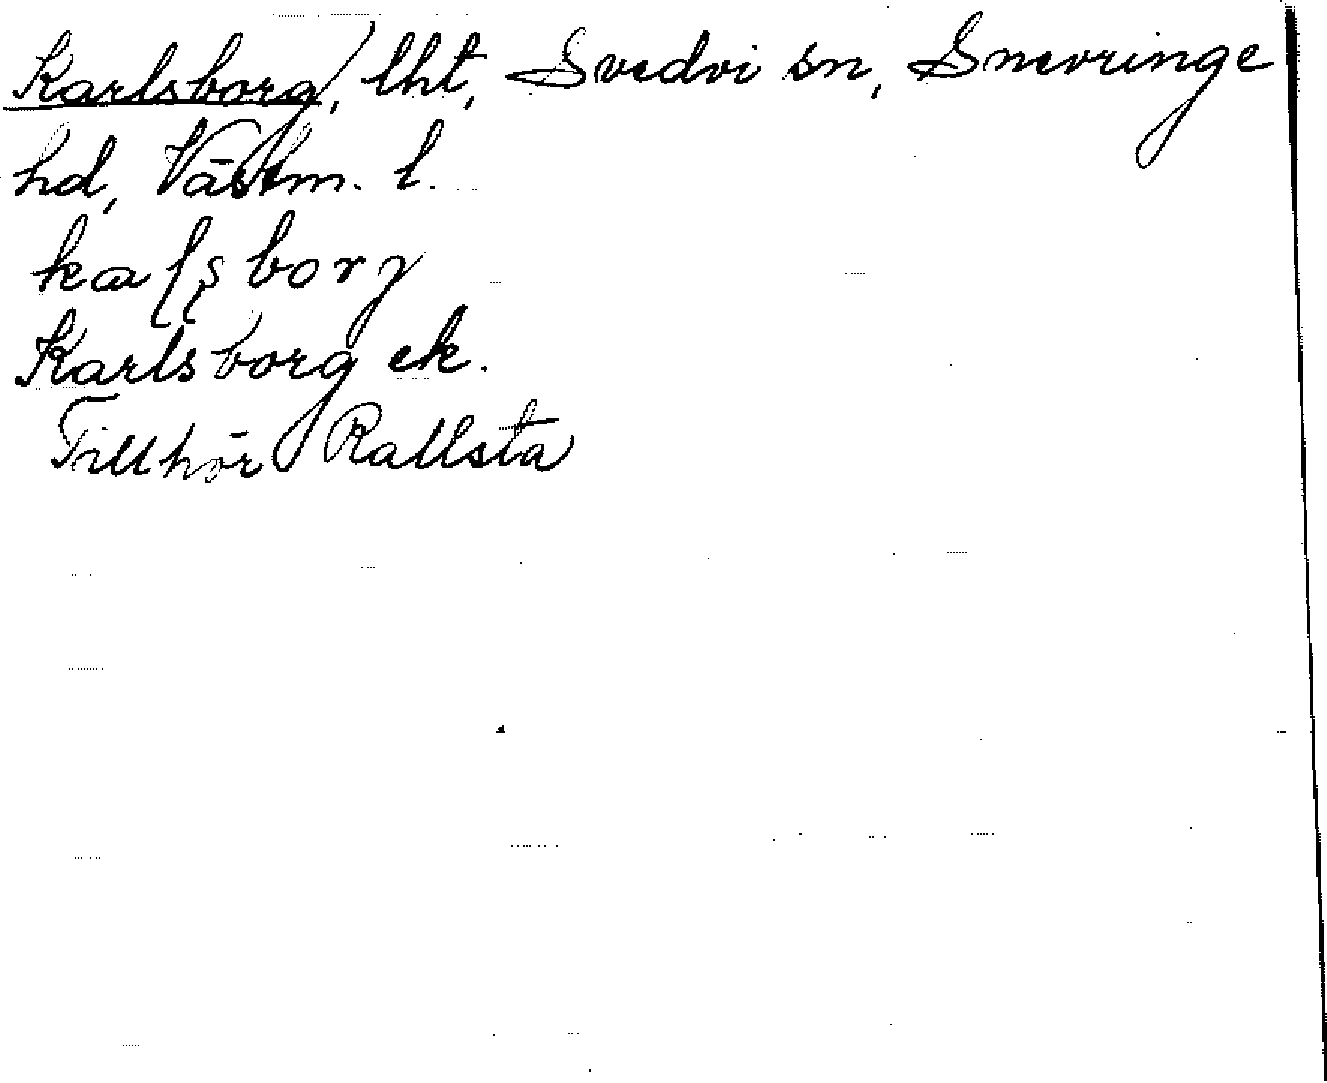 Karlsborg, lht, Svedvi sn, Snevringe
hd, Västm. l.
kaɭʂborj
Karlsborg ek.
Tillhör Rallsta